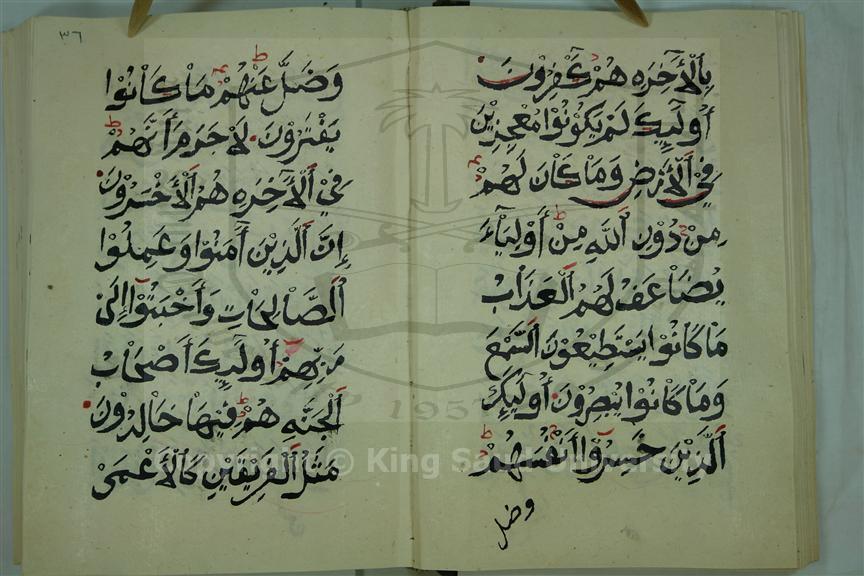 بِالْأَخِرَهِ هُمْ كَٰفِرُونَ
أُولَٰٓئِكَ لَمْ يَكُونُوا مُعْجِزِيْنَ
فِيْ الْأَرْضِ وَمَا كَانَ لَهُمْ
مِنْ دُوْنِ اللَّهِ مِنْ أَوْلِيَآءَ
يُضَاعَفُ لَهُمُ الْعَذَابُ
مَا كَانُوا يَسْتَطِيْعُوْنَ السَّمْعَ
وَمَا كَانُوا يُبْصِرُوْنَ أُولَٰٓئِكَ
الَّذِيْنَ خَسِرُوْا أَنْفُسَهُمْ
وضل
٣٦
وَضَلَّ عَنْهُمْ مَا كَانُوْا
يَفْتَرُوْنَ لَا جَرَمَ أَنَّهُمْ
فِيْ الْأَخِرَهِ هُمُ الْأَخْسَرُوْنَ
إِنَّ الَّذِيْنَ آمَنُوْا وَعَمِلُوْا
الصَّالِحَاتِ وَأَخْبَتُوْا إِلَىٰ
رَبِّهِمْ أُولَٰٓئِكَ أَصْحَابُ
الْجَنَّهِ هُمْ فِيْهَا خَالِدُوْنَ
مَثَلُ الْفَرِيْقَيْنِ كَالْأَعْمَىٰ
1957
Copyright © King Saud University